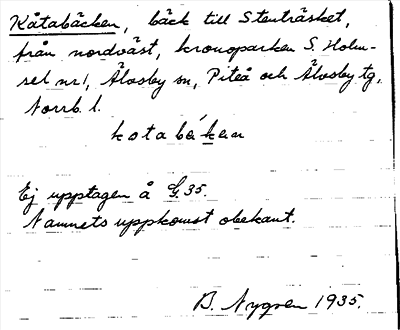 Kåtabäcken, bäck till Stenträsket,
från nordväst, kronoparken S. Holm-
sel nr 1, Älvsby sn, Piteå och Älvsby tg,
Norrb. l.
kotabäkan
Ej upptagen å G. 35.
Namnets uppkomst obekant.
B. Nygren 1935.